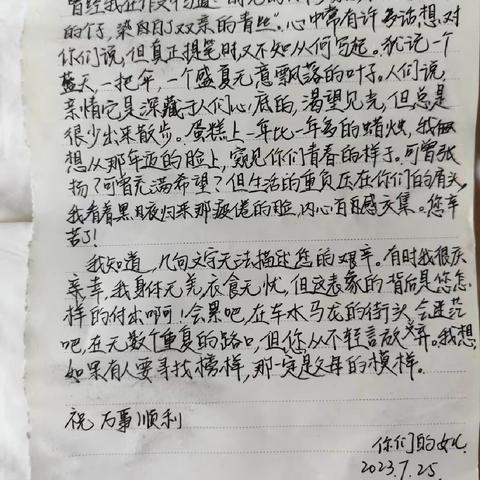 曾经我在作文中写道
的行,染白了双亲的青丝”。心中常有许多话,想对
你们说,但真正提笔时,又不知从何写起。犹记一个
蓝天,一把伞,一个盛夏无意飘落的叶子。人们说,
亲情它是深藏于人们心底的,渴望见光,但总是
很少出来散步。蛋糕上一年比一年多的蜡烛,我
想从那年迈的脸上,窥见你们青春的样子。可曾张
扬?可曾充满希望?但生活的重负压在你们的肩头,
我看着黑夜归来那疲倦的脸,内心百感交集。您辛
苦了!
我知道,几句文字无法描述您的艰辛。有时我很庆
幸,我身体无羌,衣食无忧,但这表象的背后是您怎
样的付出啊!会累吧,在车水马龙的街头,会迷茫
吧,在无数个重复的路口,但您从不轻言放弃。我想,
如果有人要寻找榜样,那一定是父母的模样。
祝 万事顺利
你们的女儿
2023.7.25.